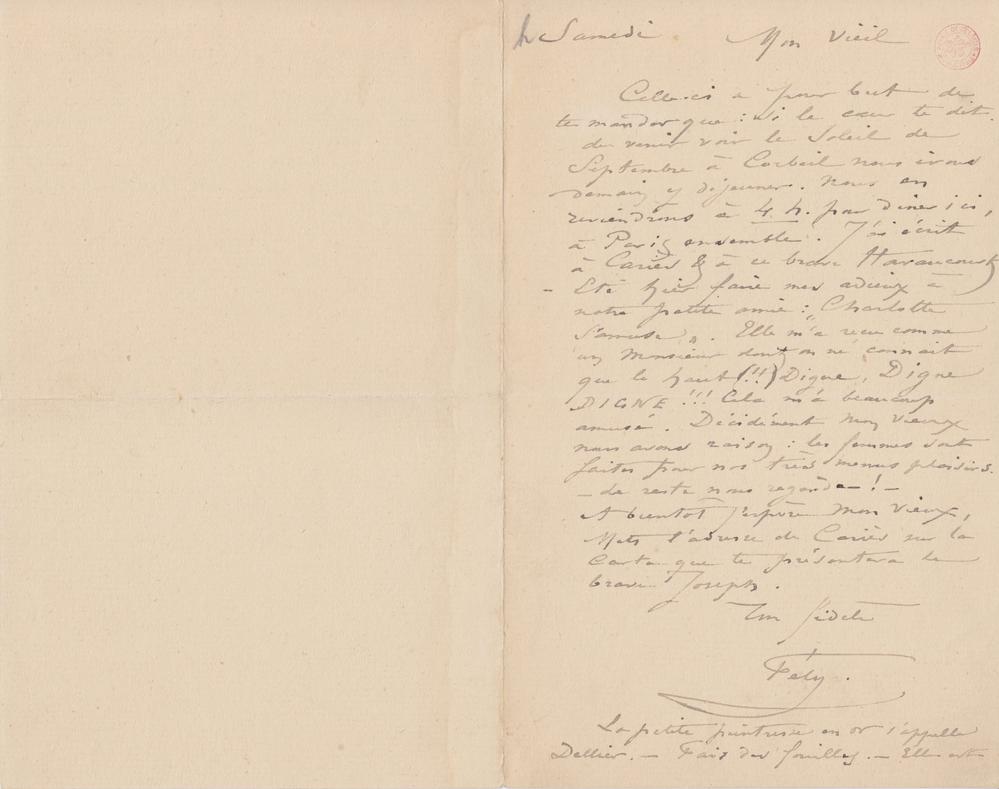 Samedi Mon vieil
Celle-ci a pour but de
te mander que : si le cœur te dit
de venir voir le Soleil de
Septembre à Corbeil nous irons
demain y déjeuner. Nous en
reviendrons à 4 h. pour diner ici,
à Paris ensemble. J'ai écrit
à Cariès & à ce brave Haraucourt
- Eté hier faire mes adieux à
notre petite amie : "Charlotte
s'amuse". Elle m'a reçu comme
un Monsieur dont on ne connait
que le haut (!!) Digne, Digne
DIGNE !!! Cela m'a beaucoup
amusé. Décidément mon vieux
nous avons raison : les femmes sont
faites pour nos très menus plaisirs.
- le reste nous regarde - ! -
A bientôt j'espère mon vieux,
Mets l'adresse de Cariès sur la
carte que te présentera le
brave Joseph.
Ton fidele
Fély.
La petite peintresse en or s'appelle
Dellier. - Fais des fouilles. - Elle est